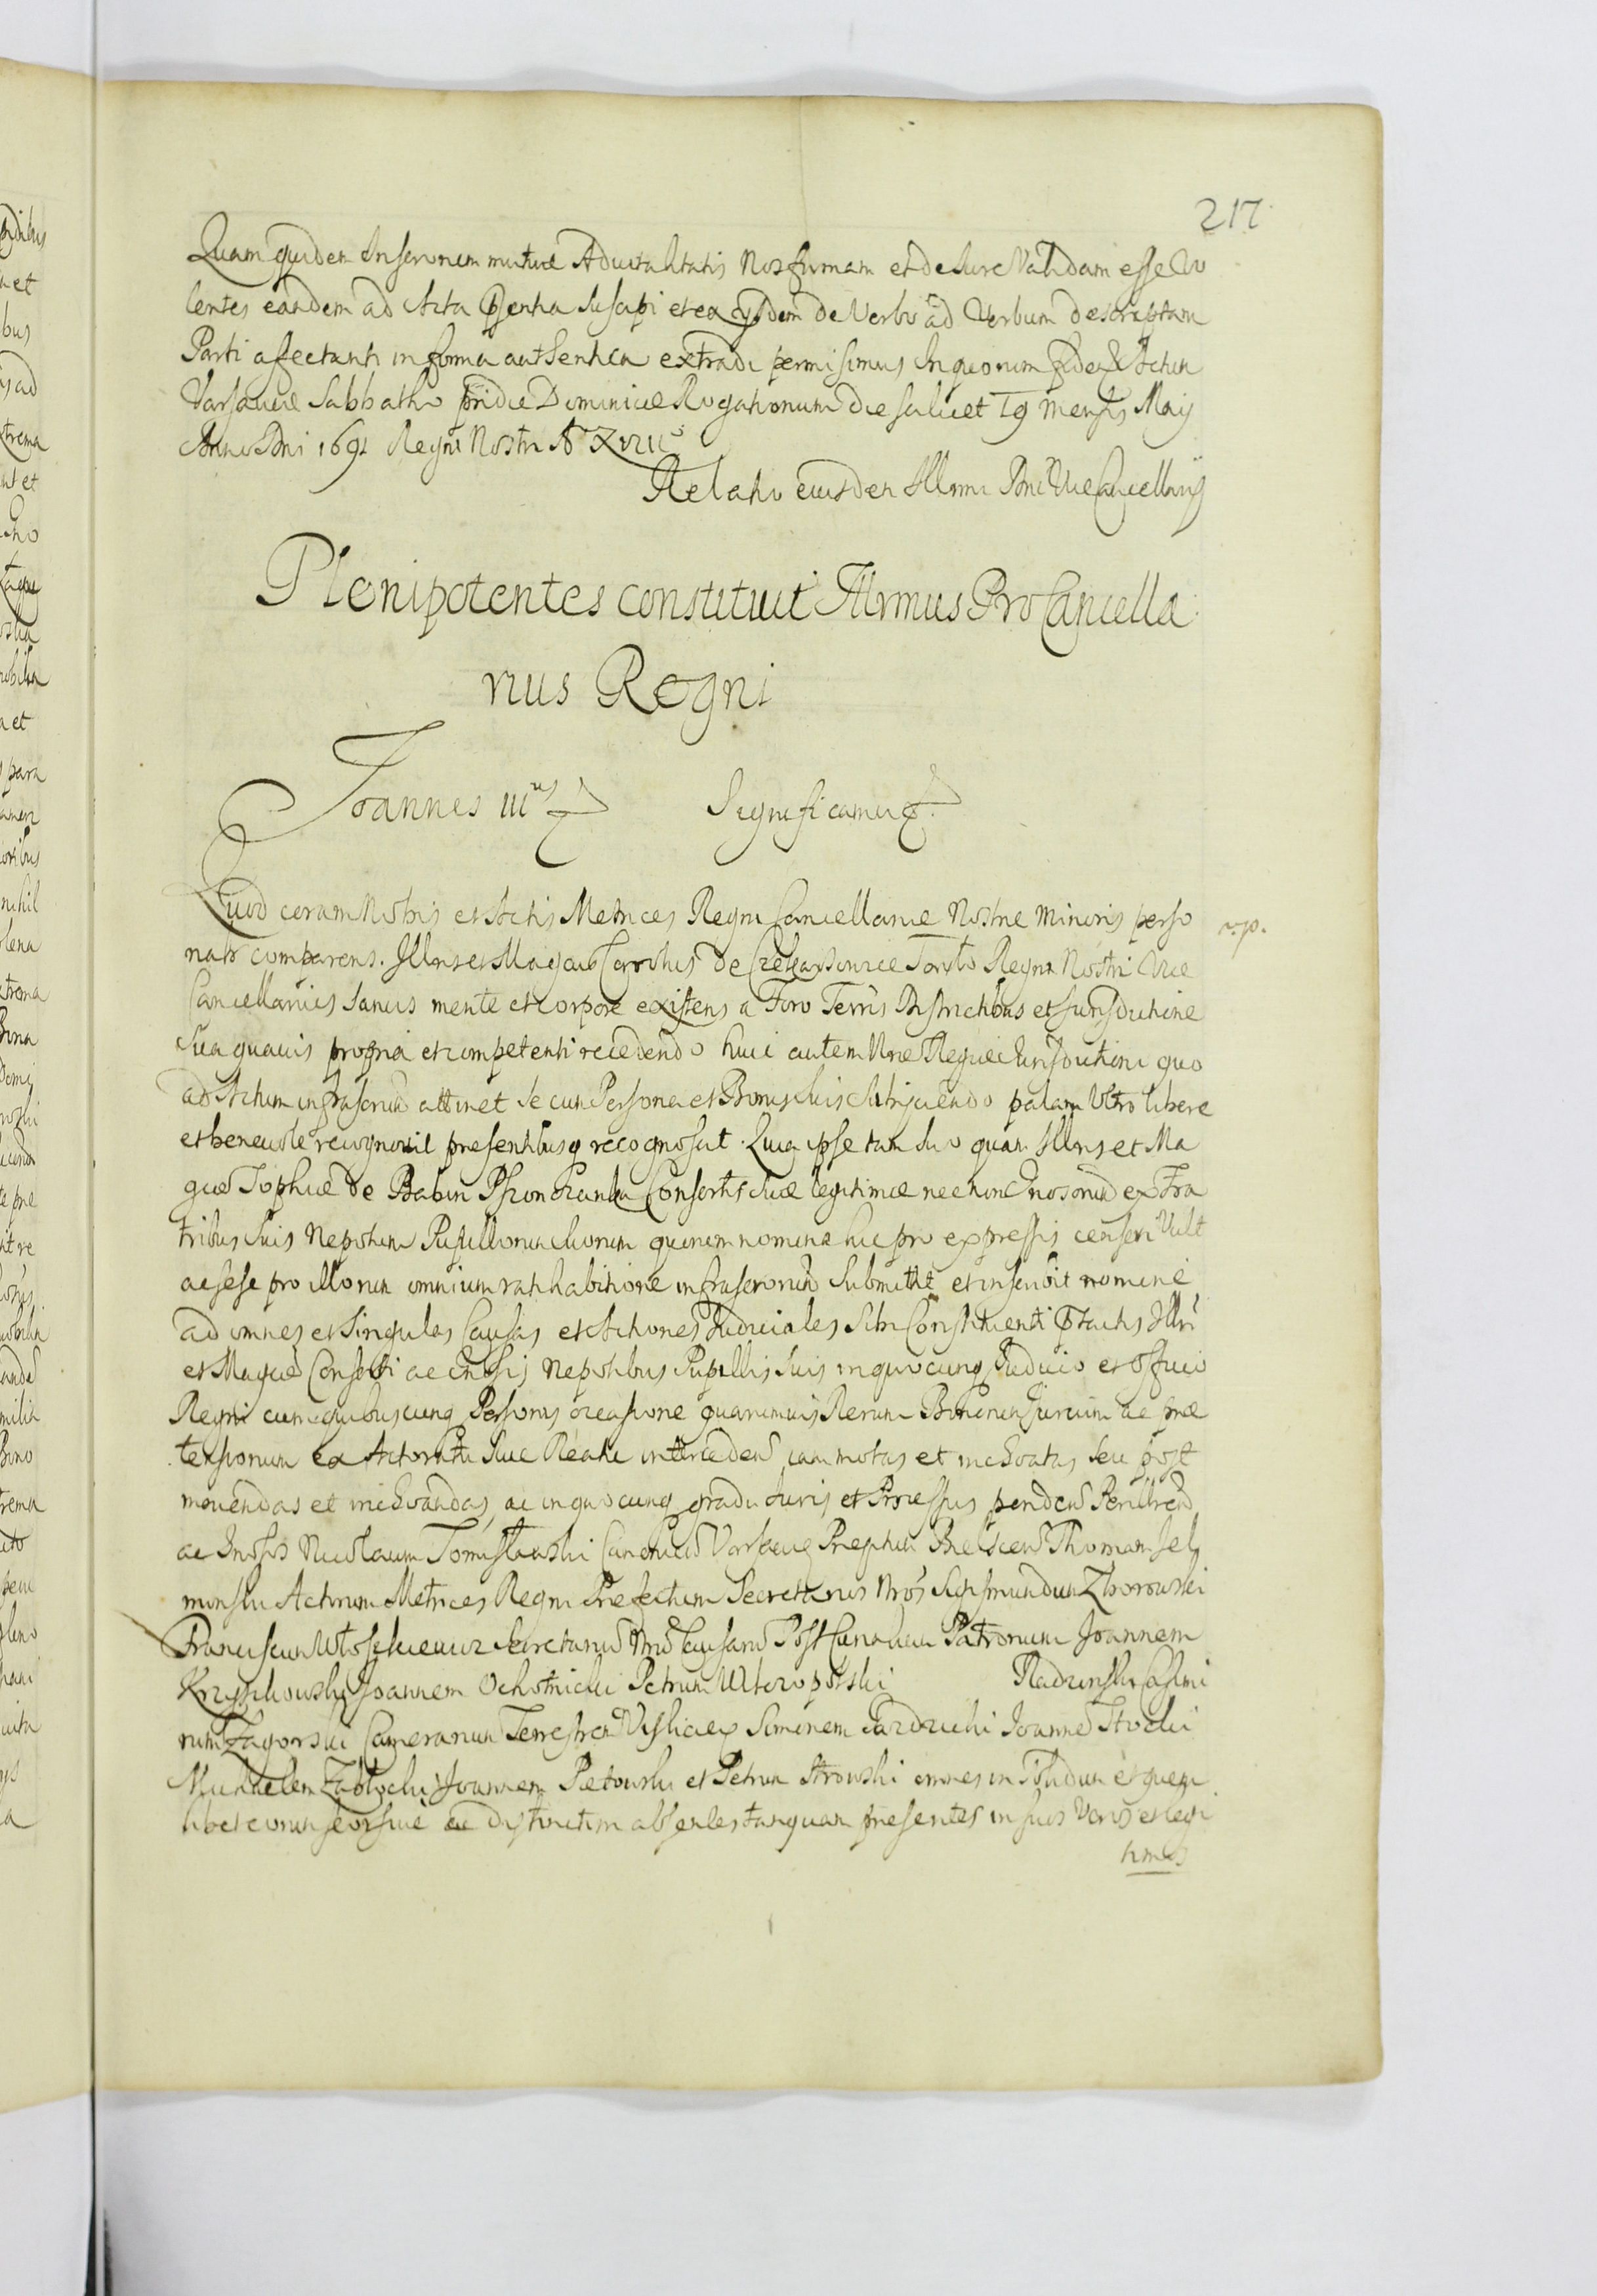 217
Quam quidem Inscriptionem mutuæ Advitalitatis Nos firmam et de Iure Validam esse vo
lentes eandem ad Acta psentia suscipi et ex ijsdem de Verbo ad Verbum descriptam
Parti afectanti in forma authentica extradi permisimus In quorum fidem Actum
Varsaviæ Sabbatho pridie Dominicæ Rogationum die scilicet 19 Mensis Maij
Anno Dni 1691 Regni Nostri Ao XVIIo
Relatio eiusdem Illrmi Dni ViceCancellarij
Plenipotentes constituit Illrmus ProCancella
rius Regni
Joannes IIIus Significamus
Quod coram Nobis et Actis Metrices Regni Cancellariæ Nostræ Minoris perso
nalr comparens. Illris et Magcus Carolus de Tarło Regni Nostri Vice
Cancellarius sanus mente et corpore existens a Foro Terris Districtibus et Jurisdictione
sua quavis propria et competenti recedendo huic autem Nræ Regiæ Jurisdictioni quo
ad Actum infrascriptum attinet se cum Persona et Bonis suis subijciendo palam Ultro libere
et benevole recognovit presentibusq recognoscit. Quia ipse tam suo quam Illris et Ma
gcæ Sophiæ de Babin Pszonczanka Consortis suæ legitimæ necnon Gnosorum ex Fra
tribus suis Nepotum Pupillorum suorum quorum nomina hic pro expressis censeri Vult
ac sese pro illorum omnium ratihabitione infrascriptorum submittit et inscribit nomine
ad omnes et singulas Causas et Actiones Judiciales sibi Constituenti ptactis Illri
et Magcæ Consorti ac Gnosis Nepotibus Pupillis suis in quocunq Judicio et Officio
Regni cum quibuscunq Personis occasione quarumvis Rerum Bonorum Jurium ac præ
tensionum ex Actoratu sive Reatu interceden iam motas et inchoatas seu post
movendas et inchoandas, ac in quocunq gradu Juris et Processus penden Perillrem
ac Gnosos Nicolaum Tomisławski Canonicum Varsavien Prepositum Thomam Sel
minski Actorum Metrices Regni Prefectum Secretarios Nros Sigismundum Zborowski
Franciscum Secretarium Nrm Causarum Post Curialium Patronum Joannem
Joannem Ochotnicki Petrum Radzinski Casimi
rum Zagorski Camerarium Terrestrem Vislicien Simonem Joannem Stocki
Michaelem Zabłocki Joannem Pietowski et Petrum Strowski omnes in solidum et quem
libet eorum seorsive ac distinctim absentes tanquam presentes in suos Veros et legi
timos